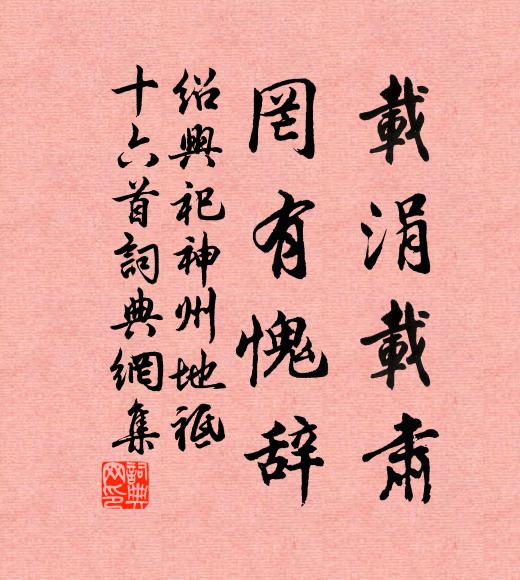 載涓載肅
罔有愧辞
绍興祀神州地祇
十六首詞典網集
詞典网印